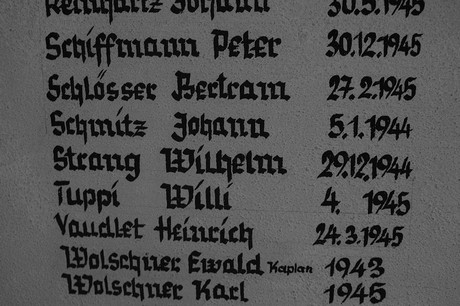 Reinhartz Johann 30.5.1945
Schiffmann Peter 30.12.1945
Schlösser Bertram 27.2.1945
Schmitz Johann 5.1.1944
Strang Wilhelm 29.12.1944
Tuppi Willi 4. 1945
Vaudlet Heinrich 24.3.1945
Wolschner Ewald Kaplan 1943
Wolschner Karl 1945